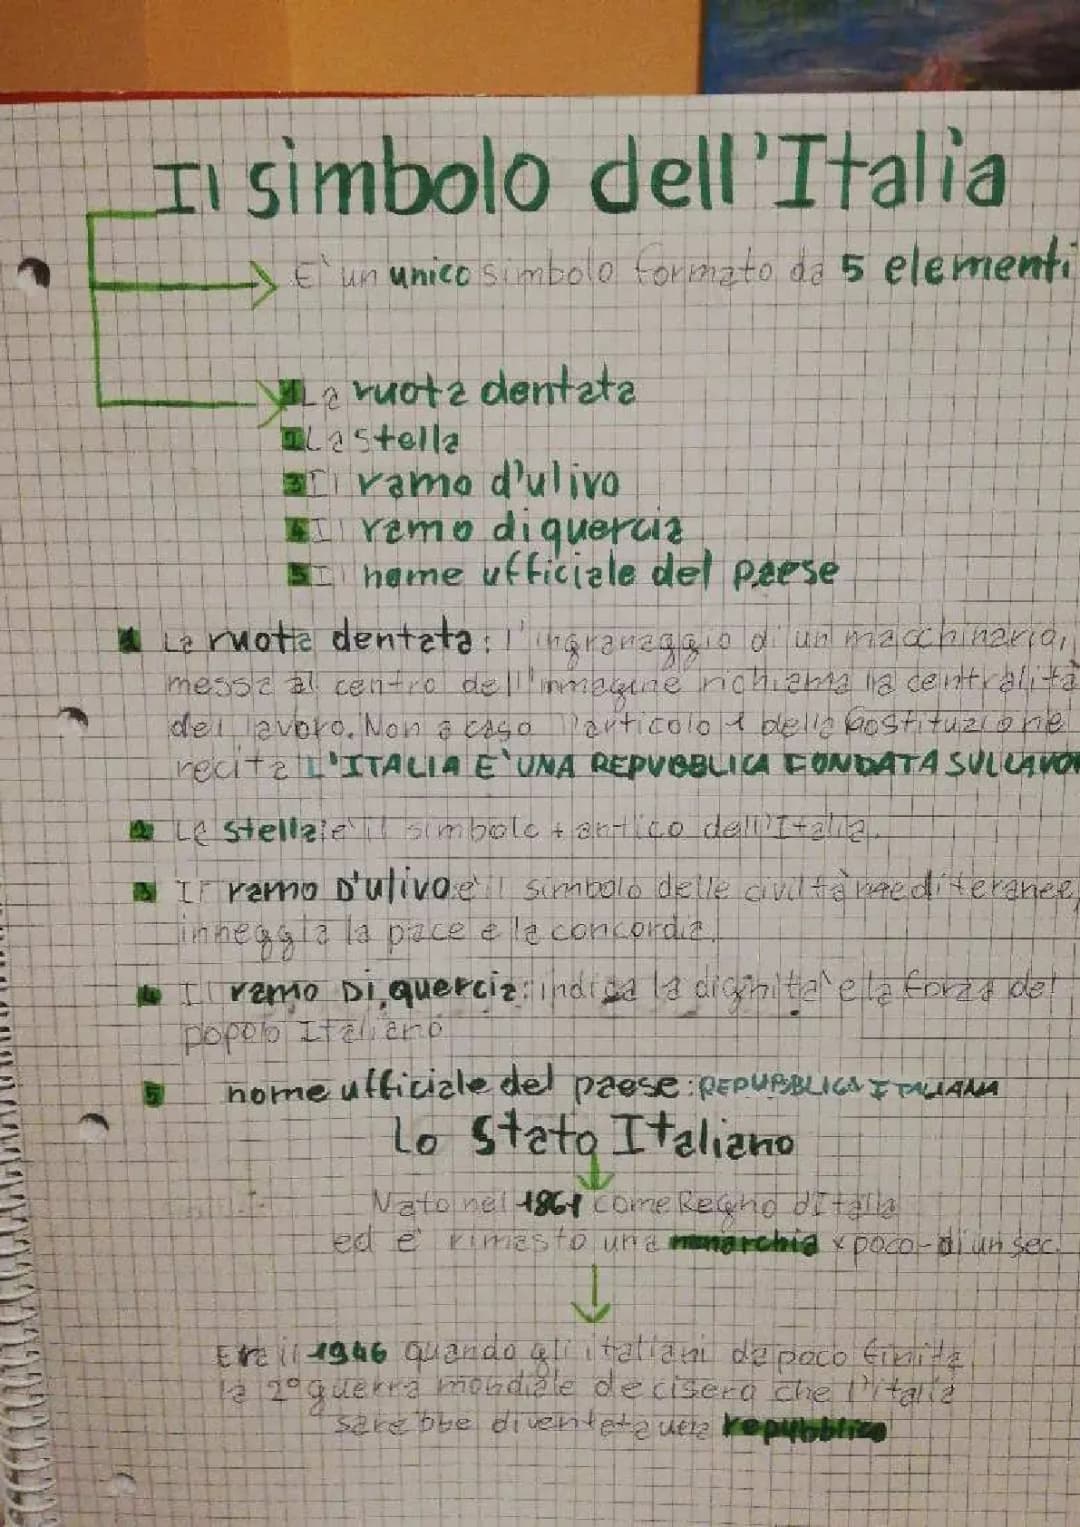 Il simbolo dell'Italia
E' un unico simbolo formato da 5 elementi
1 La ruota dentata
2 La stella
3 Il ramo d'ulivo
4 Il ramo di quercia
5 Il nome ufficiale del paese
1 La ruota dentata: l'ingranaggio di un macchinario,
messa al centro dell'immagine richiama la centralità
del lavoro. Non a caso l'articolo 1 della Costituzione
recita L'ITALIA E' UNA REPUBBLICA FONDATA SUL LAVOR
2 La stella: e' il simbolo + antico dell'Italia.
3 Il ramo D'ulivo: e' il simbolo delle civiltà mediteranee,
inneggia la pace e la concordia.
4 Il ramo Di quercia: indica la dignita' e la forza del
popolo Italiano
5 nome ufficiale del paese: REPUBBLICA ITALIANA
Lo Stato Italiano
Nato nel 1861 come Regno d'Italia
ed e' rimasto una monarchia x poco - di un sec.
Era il 1946 quando gli italiani da poco finita
la 2° guerra mondiale decisero che l'italia
sarebbe diventata una repubblica